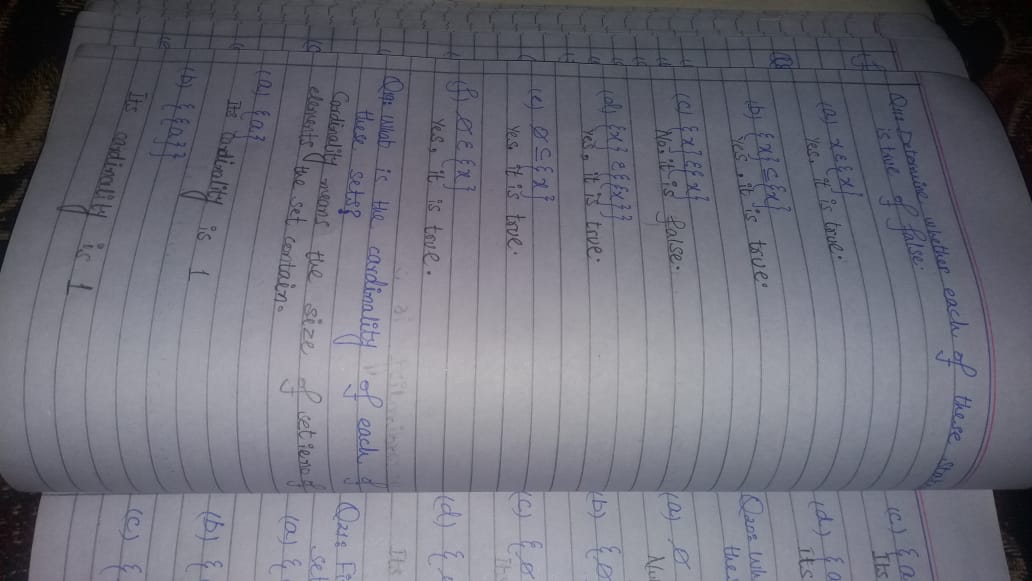 Q11: Determine whether each of these stat
is true of false.
(a) x ε {x}
Yes, it is true.
(b) {x} ⊆ {x}
Yes, it is true.
(c) {x} ε {x}
No, it is false.
(d) {x} ε {{x}}
Yes, it is true.
(e) ∅ ⊆ {x}
Yes, it is true.
(f) ∅ ε {x}
Yes, it is true.
Q19: What is the cardinality of each of
these sets?
Cardinality means the size of set i.e no of
elements the set contain.
(a) {a}
Its cardinality is 1
(b) {{a}}
Its cardinality is 1
(c) {a
Its
(d) {a
its
Q20: Wh
the
(a) ∅
Nu
(b) {∅
(c) {∅
It
(d) {
Its
Q21: Fi
set
(a) {
(b) {
(c) {